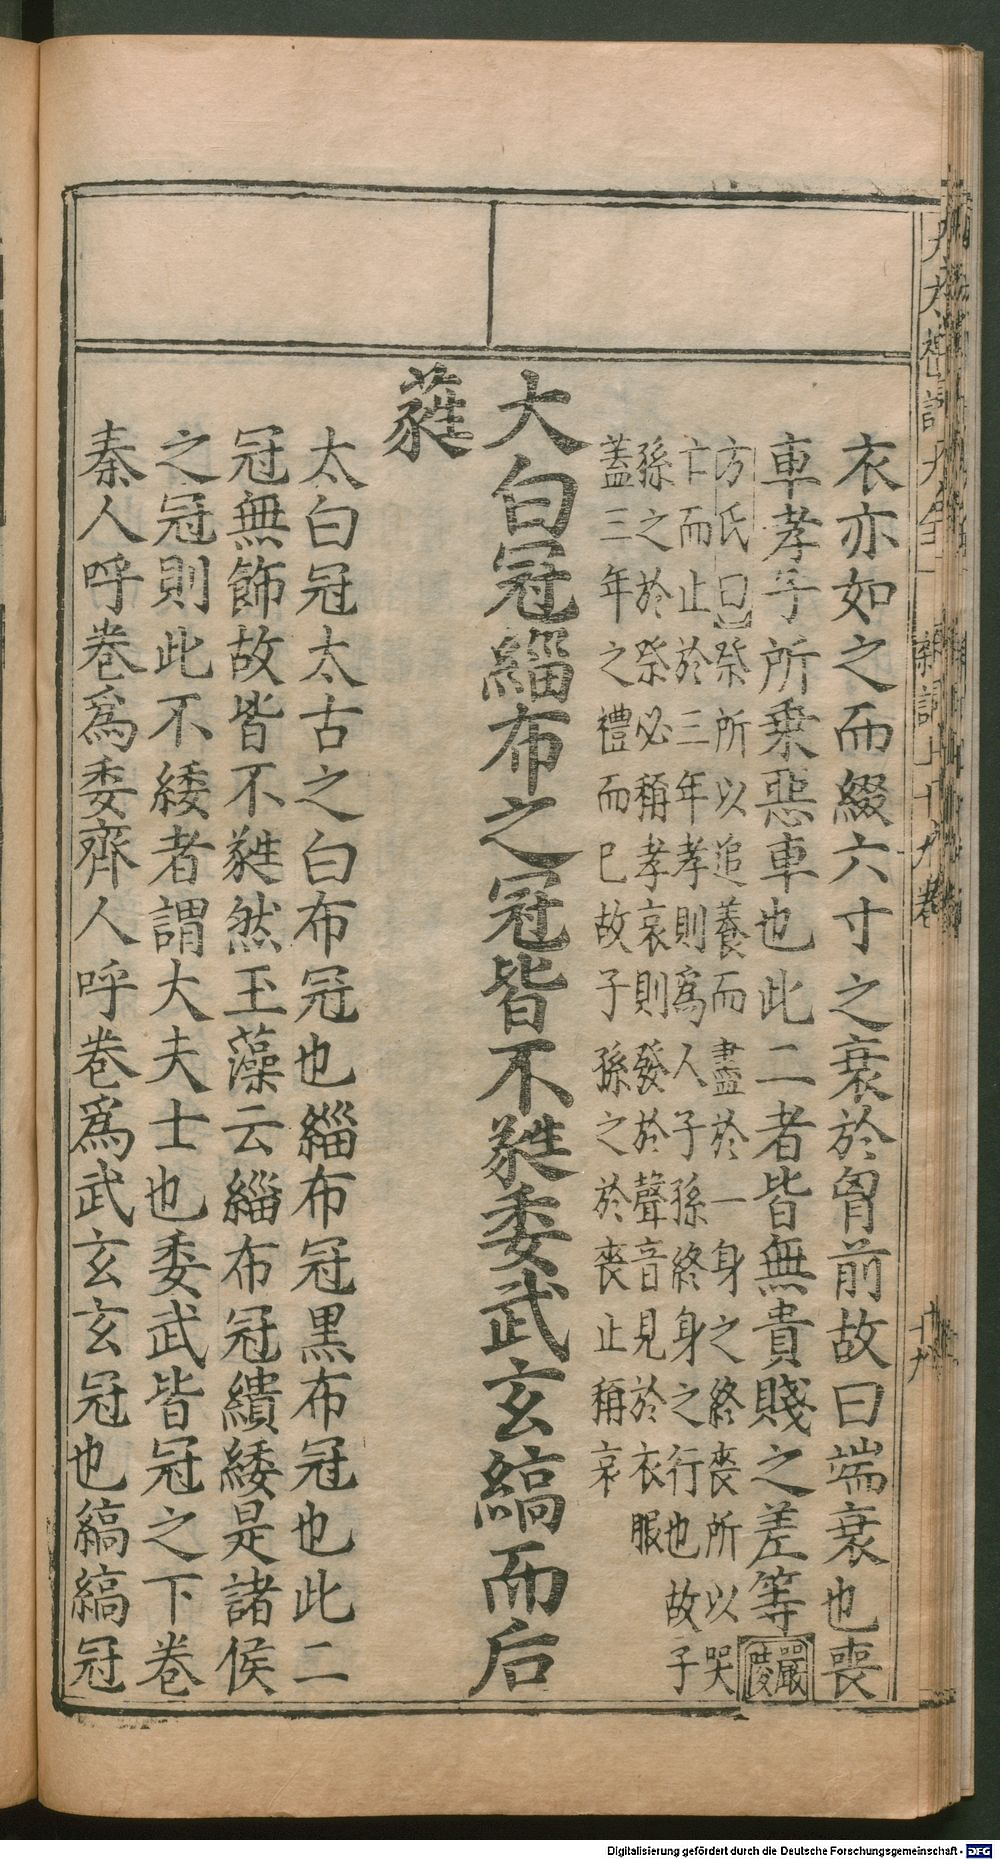 衣亦如之而綴六寸之衰於胷前故曰端衰也喪
車孝子所乗惡車也此二者皆無貴賤之差等嚴陵
方氏曰祭所以追養而盡於一身之終喪所以哭
亡而止於三年孝則為人子孫終身之行也故子
孫之於祭必稱孝哀則發於聲音見於衣服
蓋三年之禮而已故子孫之於喪止稱哀
大白冠緇布之冠皆不蕤委武玄縞而后
蕤
太白冠太古之白布冠也緇布冠黒布冠也此二
冠無飾故皆不蕤然玉藻云緇布冠繢緌是諸侯
之冠則此不緌者謂大夫士也委武皆冠之下卷
秦人呼卷爲委齊人呼卷爲武玄玄冠也縞縞冠
十九
Digitalisierung gefördert durch die Deutsche Forschungsgemeinschaft - DFG